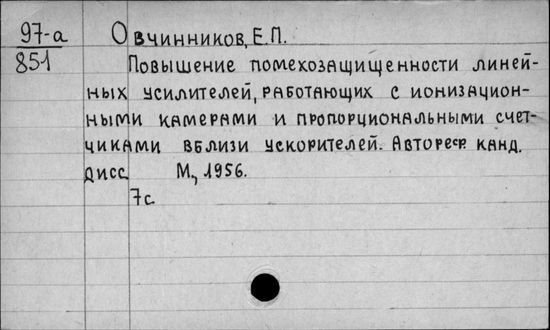 97-а Овчинников, Е.П.
851 Повышение помехозащищенности линей-
ных усилителей, работающих с ионизацион-
ными камерами и пропорциональными счет-
чиками вблизи ускорителей. Автореф. канд.
дисс. М., 1956.
7с.